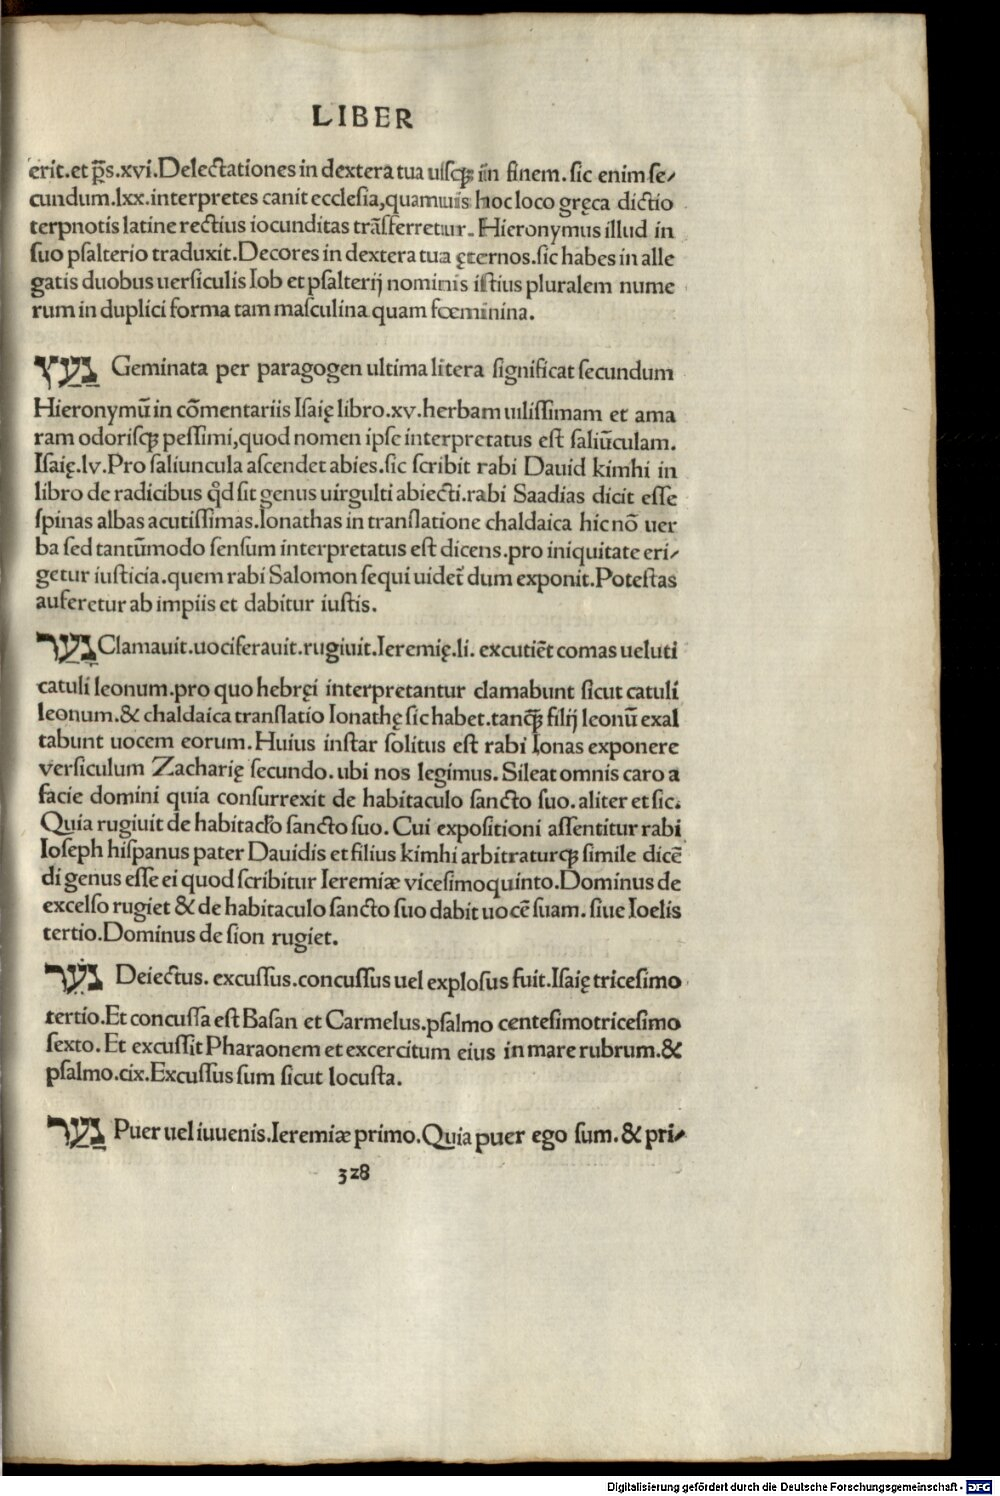 LIBER
erit.et p̄s.xvi.Delectationes in dextera tua uſſq̄ꝫ in finem. ſic enim ſe⸗
cundum.lxx.interpretes canit eccleſia,quamuis hoc loco gręca dictio
terpnotis latine rectius iocunditas trāſferretur. Hieronymus illud in
ſuo pſalterio traduxit.Decores in dextera tua ęternos.ſic habes in alle
gatis duobus uerſiculis Iob et pſalterij nominis iſtius pluralem nume
rum in duplici forma tam maſculina quam fœminina.
נַעַץ Geminata per paragogen ultima litera ſignificat ſecundum
Hieronymū in cōmentariis Iſaię libro.xv.herbam uiliſſimam et ama
ram odoriſq̄ꝫ peſſimi,quod nomen ipſe interpretatus eſt ſaliūculam.
Iſaię.lv.Pro ſaliuncula aſcendet abies.ſic ſcribit rabi Dauid kimhi in
libro de radicibus q̊d ſit genus uirgulti abiecti.rabi Saadias dicit eſſe
ſpinas albas acutiſſimas.Ionathas in tranſlatione chaldaica hic nō uer
ba ſed tantūmodo ſenſum interpretatus eſt dicens.pro iniquitate eri⸗
getur iuſticia.quem rabi Salomon ſequi uidet̄ dum exponit.Poteſtas
auferetur ab impiis et dabitur iuſtis.
נַעַר Clamauit.uociferauit.rugiuit.Ieremię.li. excutiēt comas ueluti
catuli leonum.pro quo hebręi interpretantur clamabunt ſicut catuli
leonum.& chaldaica tranſlatio Ionathę ſic habet.tanq̄ꝫ filij leonū exal
tabunt uocem eorum.Huius inſtar ſolitus eſt rabi Ionas exponere
verſiculum Zacharię ſecundo.ubi nos legimus.Sileat omnis caro a
facie domini quia conſurrexit de habitaculo ſancto ſuo.aliter et ſic.
Quia rugiuit de habitac̄lo ſancto ſuo. Cui expoſitioni aſſentitur rabi
Ioſeph hiſpanus pater Dauidis et filius kimhi arbitraturq̄ꝫ ſimile dicē
di genus eſſe ei quod ſcribitur Ieremiæ viceſimoquinto.Dominus de
excelſo rugiet & de habitaculo ſancto ſuo dabit uocē ſuam. ſiue Ioelis
tertio.Dominus de ſion rugiet.
נֹעַר Deiectus. excuſſus.concuſſus uel exploſus fuit.Iſaię triceſimo
tertio.Et concuſſa eſt Baſan et Carmelus.pſalmo centeſimotriceſimo
ſexto. Et excuſſit Pharaonem et excercitum eius in mare rubrum.&
pſalmo.cix.Excuſſus ſum ſicut locuſta.
נַעַר Puer uel iuuenis.Ieremiæ primo.Quia puer ego ſum.& pri⸗
328
Digitalisierung gefördert durch die Deutsche Forschungsgemeinschaft - DFG